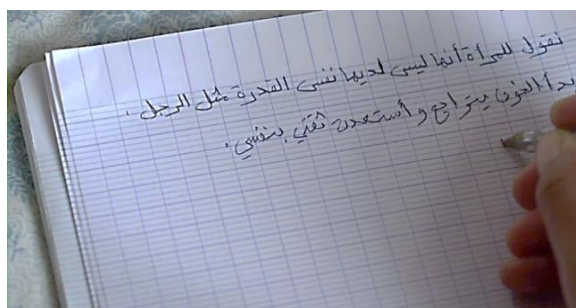 نقول للمرأة أنها ليس لديها نفس القدرة مثل الرجل.
بدأ الخوف يتراجع و أستعدت ثقتي بنفسي.